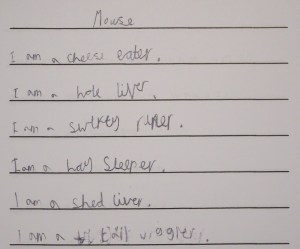 Mouse
I am a cheese eater.
I am a hole liver.
I am a
I am a hay Sleeper.
I am a shed liver.
I am a tail